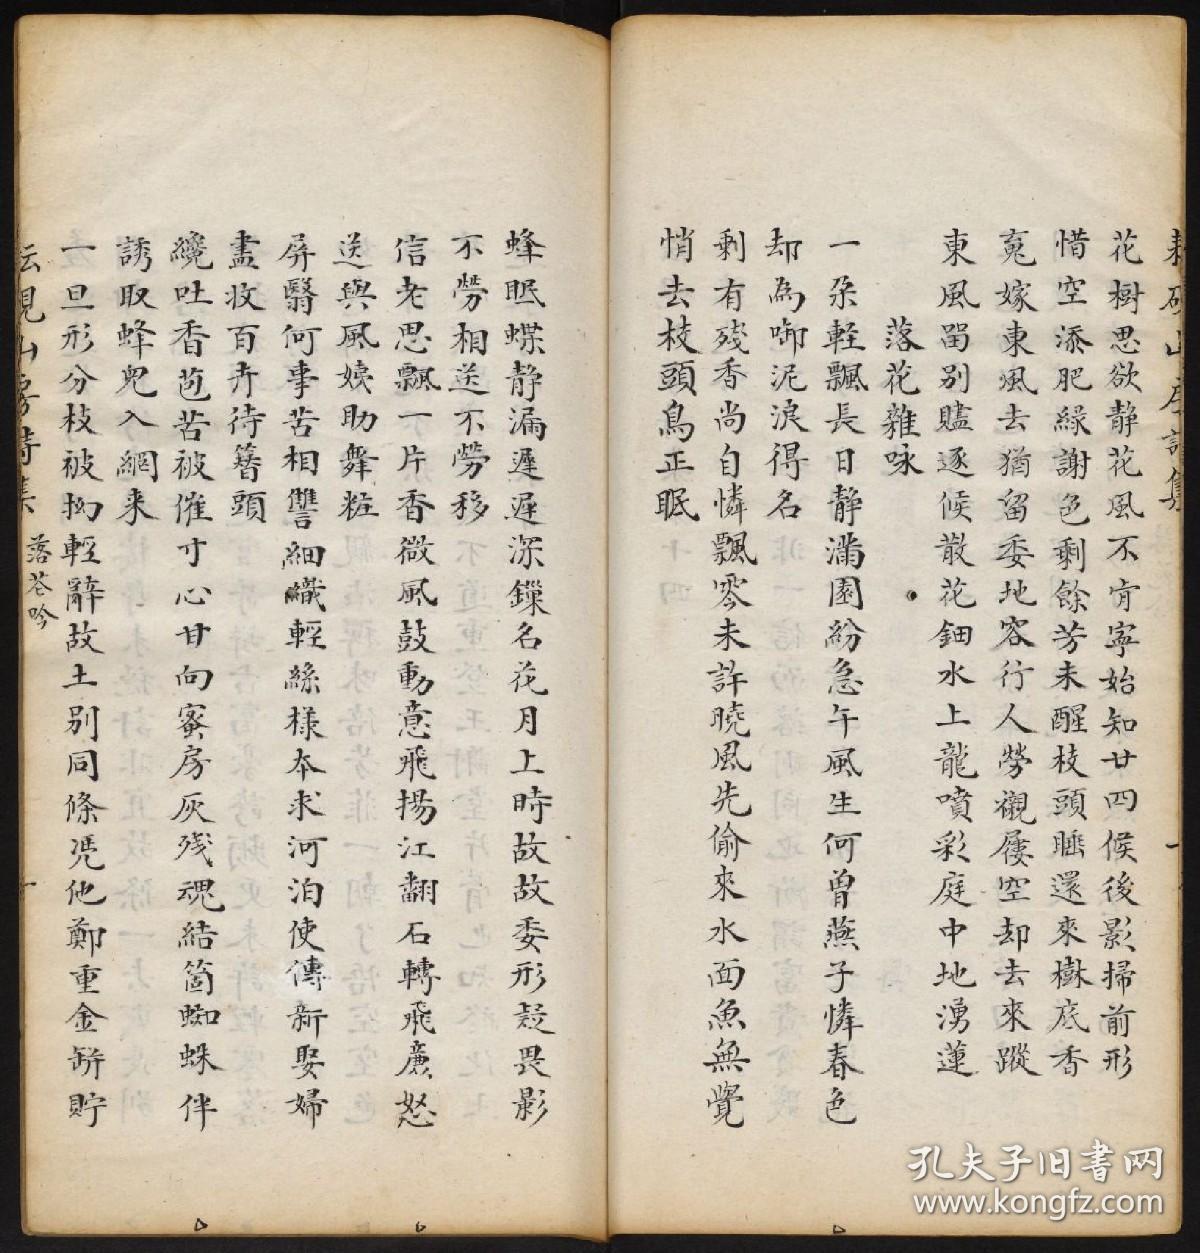 花樹思欲静花風不肯寧始知廿四候後影掃前形
惜空添肥綠謝色剩餘芳未醒枝頭睡還來樹底香
寃嫁東風去猶留委地容行人勞襯屨空却去來蹤
東風畱別贐逐候散花鈿水上龍噴彩庭中地湧蓮
落花雜咏
一朶軽飄長日静滿園紛急午風生何曽燕子憐春色
却為啣泥浪得名
剩有残香尚自憐飄零未許曉風先偷來水面魚無覺
悄去枝頭鳥正眠
蜂眠蝶静漏遲遲深鏁名花月上時故故委形疑畏影
不勞相送不勞移
信老思飄一片香微風鼓動意飛揚江翻石轉飛廉怒
送與風姨助舞粧
屏翳何事苦相讐細織輕絲樣本求河泊使傳新娶婦
盡收百卉待簪頭
纔吐香苞苦被催寸心甘向蜜房灰残魂結箇蜘蛛伴
誘取蜂兒入網来
一旦形分枝被抝輕辭故土别同條凴他鄭重金缾貯
山房詩集 落花吟
孔夫子旧書网
www.kongfz.com